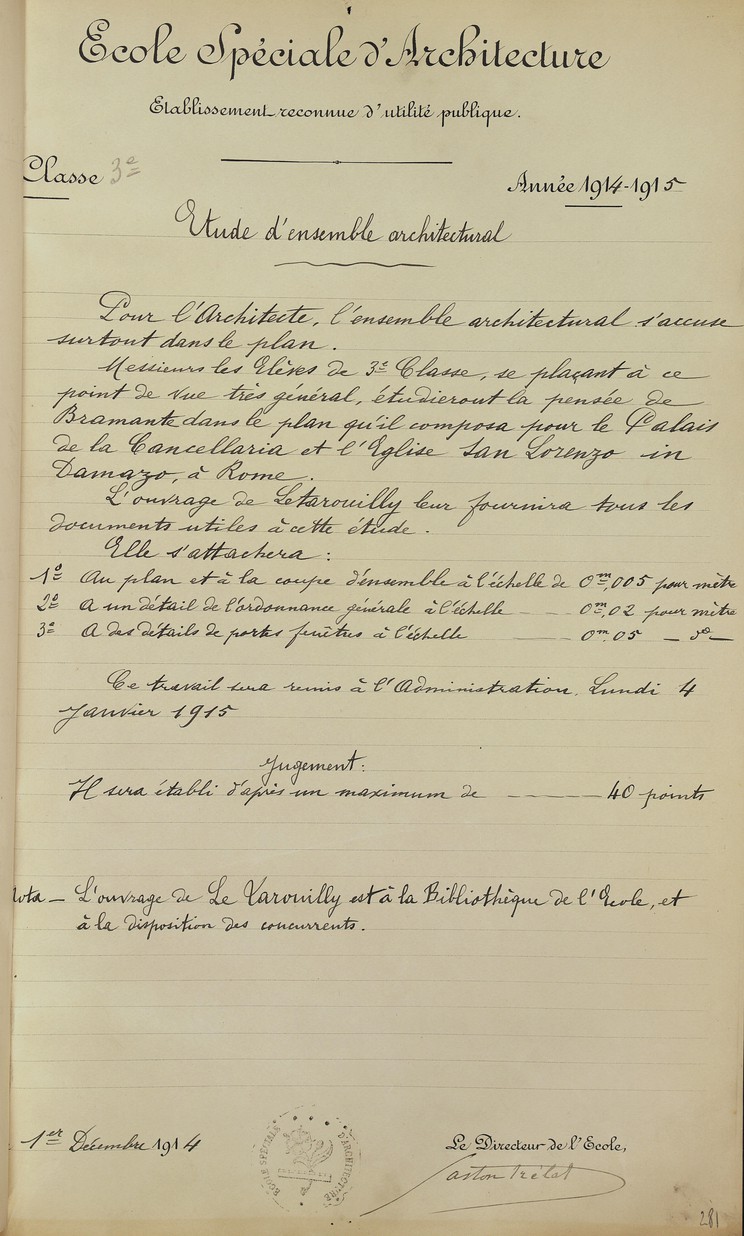 Ecole Spéciale d'Architecture
Etablissement reconnue d'utilité publique.
Classe 3e
Année 1914-1915
Etude d'ensemble architectural
Pour l'Architecte, l'ensemble architectural s'accuse
surtout dans le plan.
Messieurs les Elèves de 3e Classe, se plaçant à ce
point de vue très général, étudieront la pensée de
Bramante dans le plan qu'il composa pour le Palais
de la Cancellaria et l'Eglise San Lorenzo in
Damazo, à Rome.
L'ouvrage de Letarouilly leur fournira tous les
documents utiles à cette étude.
Elle s'attachera :
1o Au plan et à la coupe d'ensemble à l'échelle de 0m,005 pour mètre
2o A un détail de l'ordonnance générale à l'échelle — 0m,02 pour mètre
3o A des détails de portes fenêtres à l'échelle — 0m.05 — do —
Ce travail sera remis à l'Administration. Lundi 4
Janvier 1915
Jugement:
Il sera établi d'après un maximum de — 40 points
Nota — L'ouvrage de Le Tarouilly est à la Bibliothèque de l'Ecole, et
à la disposition des concurrents.
1er Décembre 1914
ECOLE SPÉCIALE D'ARCHITECTURE
Le Directeur de l'Ecole,
Gaston Trélat
281